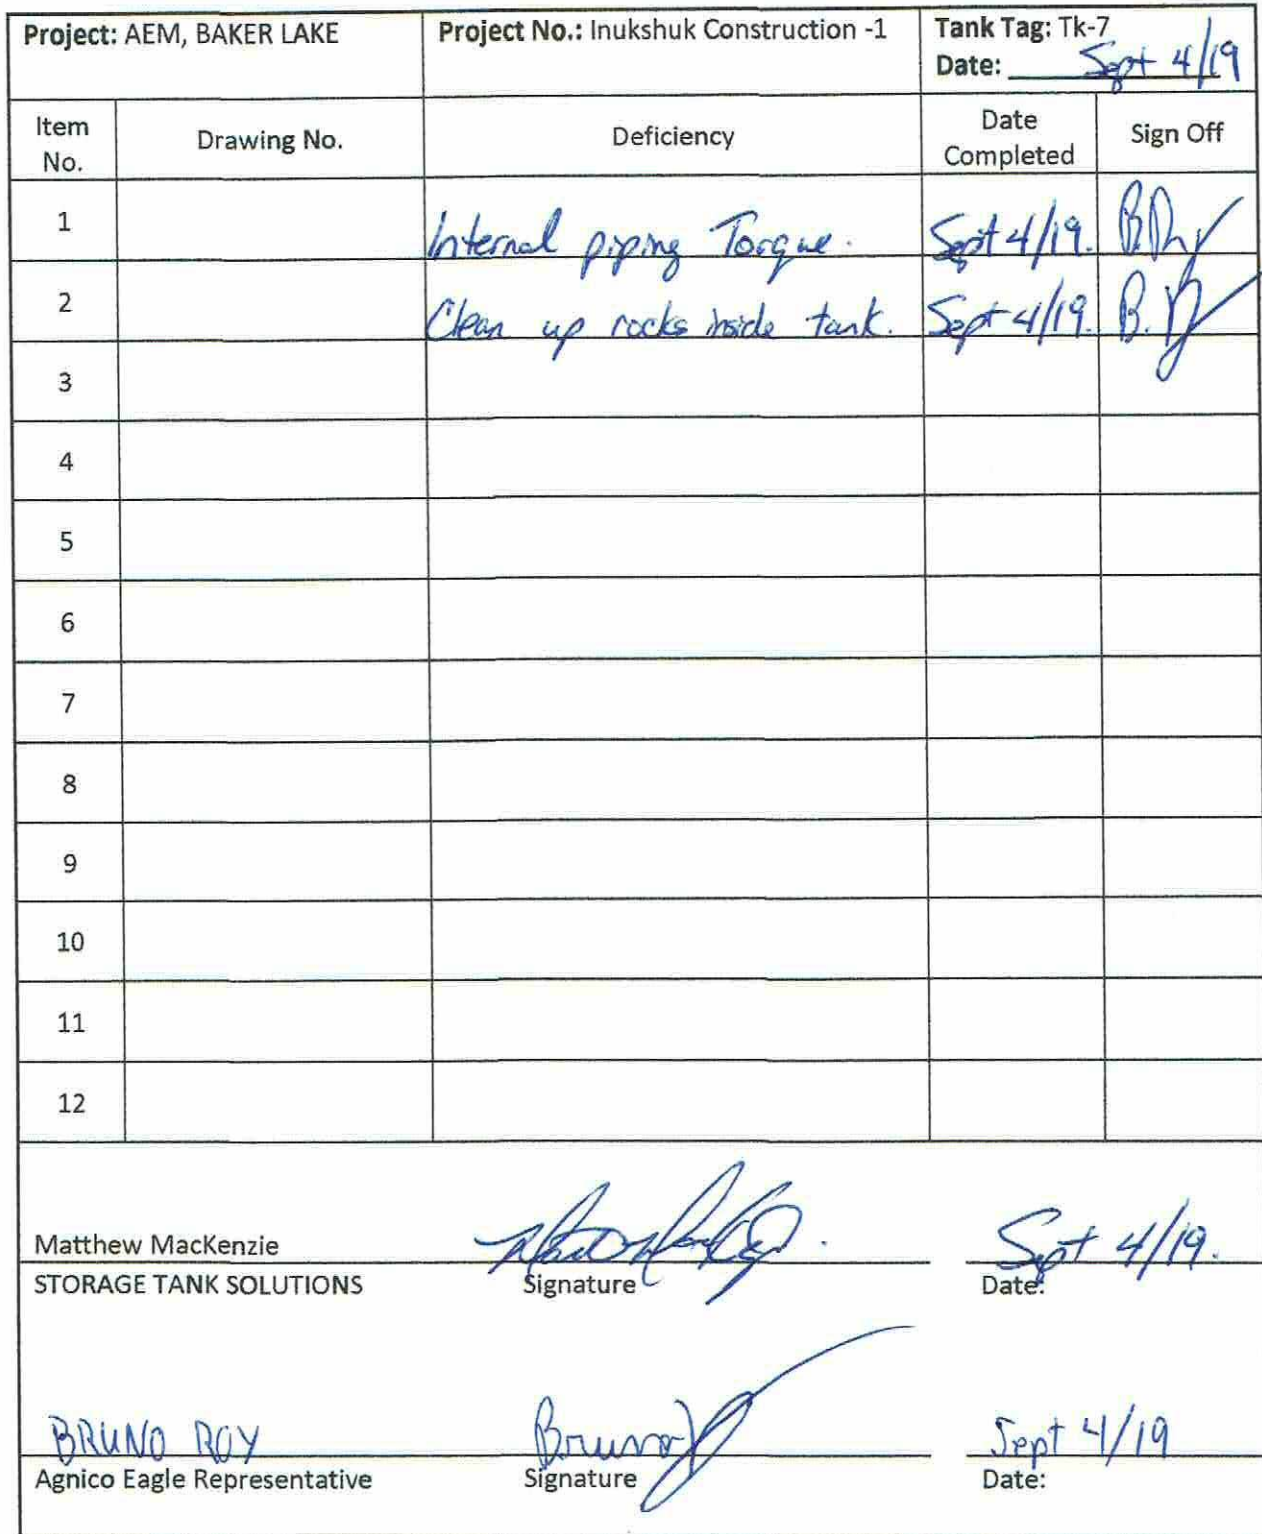 Project: AEM, BAKER LAKE
Project No.: Inukshuk Construction -1
Tank Tag: Tk-7
Date: Sept 4/19
Item No.
Drawing No.
Deficiency
Date Completed
Sign Off
1 Internal piping Torque. Sept 4/19. B. Roy
2 Clean up rocks inside tank. Sept 4/19. B. R
3
4
5
6
7
8
9
10
11
12
Matthew MacKenzie
STORAGE TANK SOLUTIONS
Signature
Sept 4/19.
Date:
BRUNO ROY
Bruno
Sept 4/19
Agnico Eagle Representative
Signature
Date: